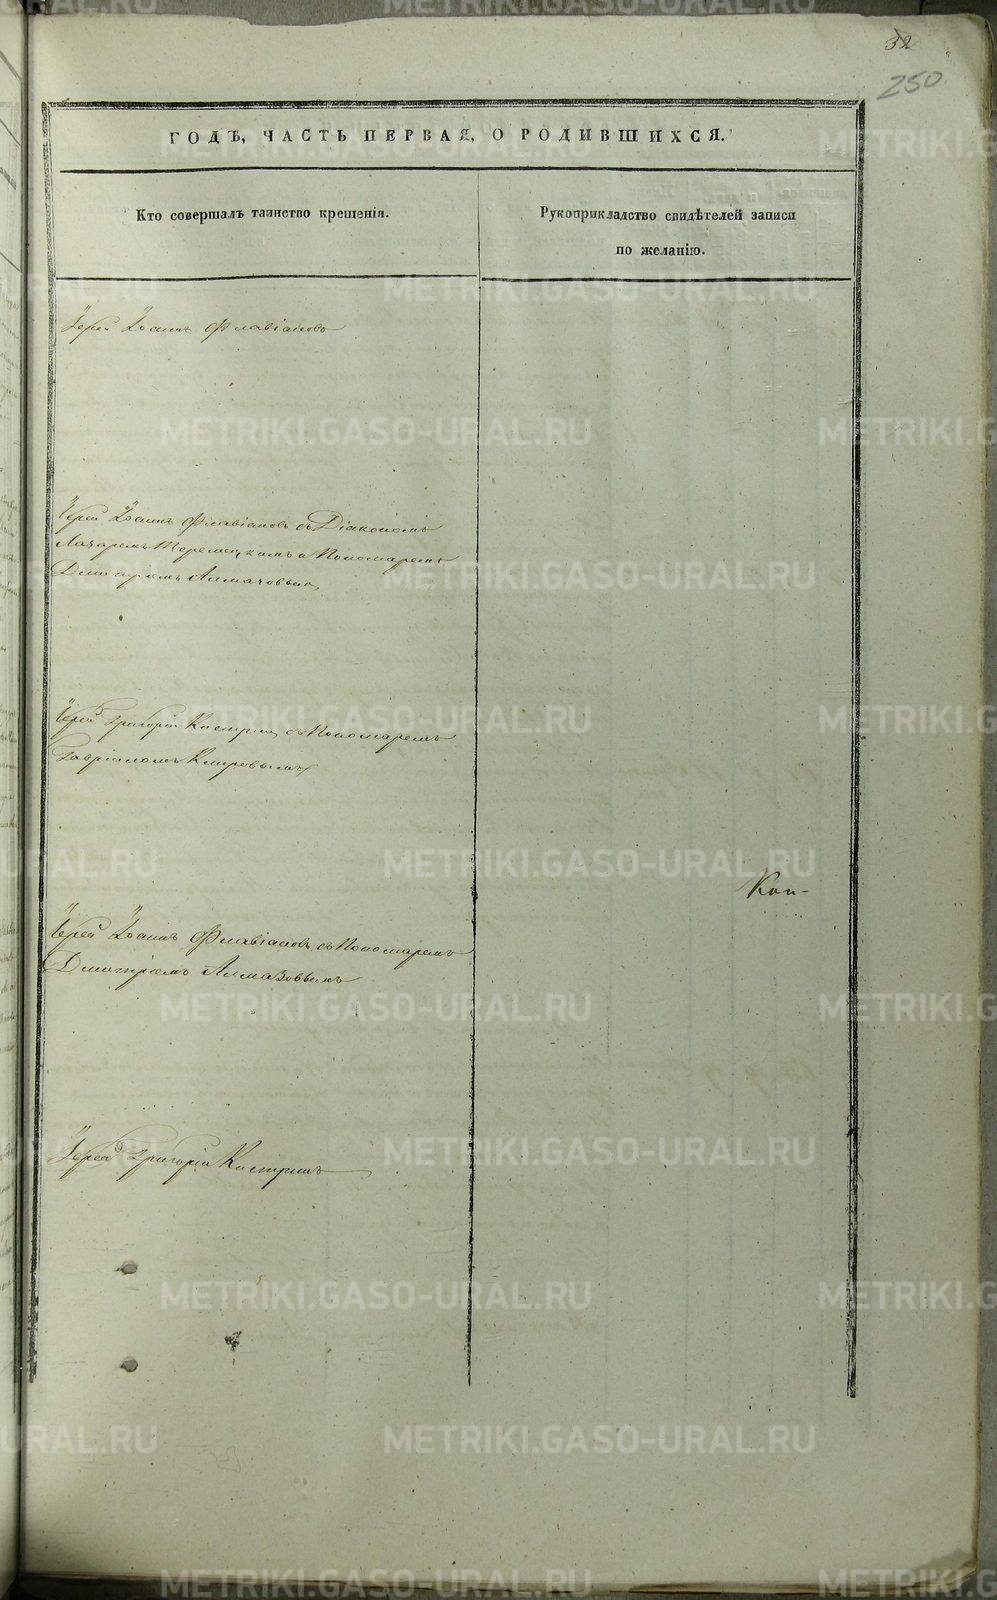 32
250
ГОДЪ, ЧАСТЬ ПЕРВАЯ, О РОДИВШИХСЯ.
Кто совершалъ таинство крещенія.
Рукоприкладство свидѣтелей записи
по желанію.
Іерей Іоаннъ Флавіановъ
Іерей Іоаннъ Флавіановъ съ Діакономъ
Лазаремъ и Пономаремъ
Дмитріемъ Алмазовымъ
Іерей Григорій Кастринъ съ Пономаремъ
Гавріиломъ Кипровымъ
Кон-
Іерей Іоаннъ Флавіановъ съ Пономаремъ
Дмитріемъ Алмазовымъ
Іерей Григорій Кастринъ
METRIKI.GASO-URAL.RU